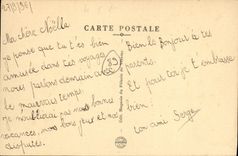 CARTE POSTALE
Ma chère Noëlle
je pense que tu t'es bien
amusée dans ton voyage
nous parlons demain avec
le mauvais temps.
je n'oublierai pas nos bonnes
vacances, nos bons jeux et nos
disputes.
Bien le bonjour à tes
parents.
Et pour toi je t'embrasse
bien.
ton ami Serge